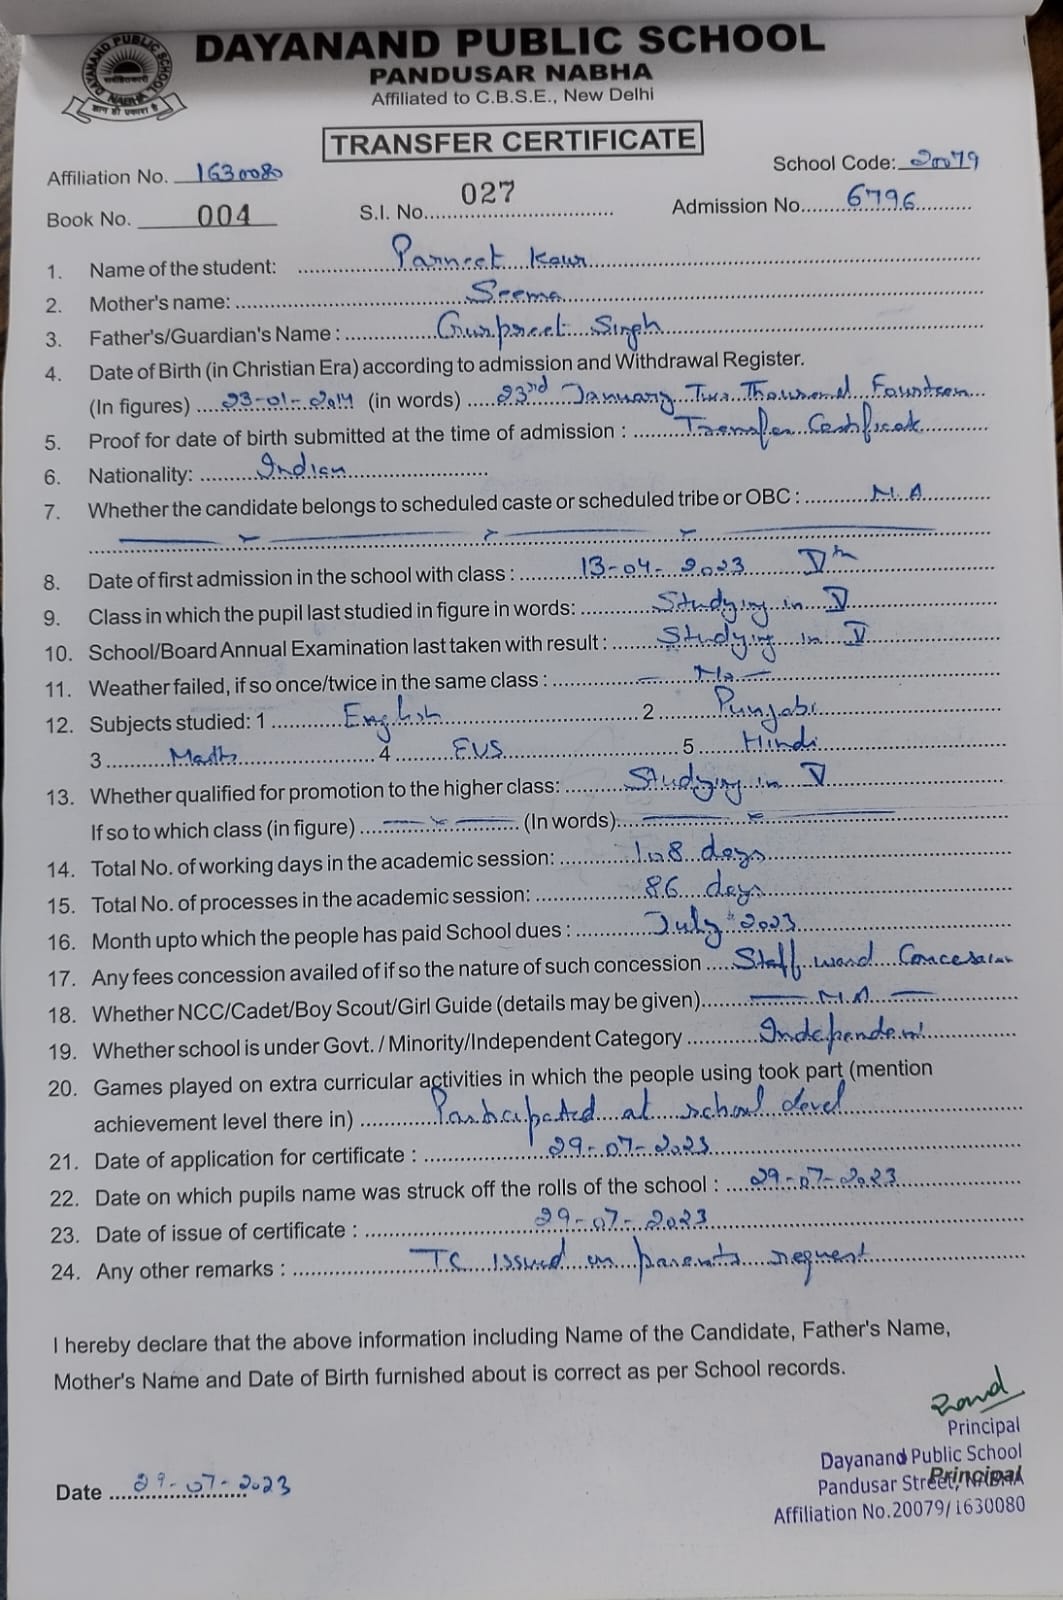 DAYANAND PUBLIC SCHOOL
PANDUSAR NABHA
Affiliated to C.B.S.E., New Delhi
DAYANAND PUBLIC SCHOOL
NABHA
TRANSFER CERTIFICATE
Affiliation No. 1630080 School Code: 20079
Book No. 004 S.I. No. 027 Admission No. 6796
1. Name of the student: Parneet Kaur
2. Mother's name: Seema
3. Father's/Guardian's Name : Gurpreet Singh
4. Date of Birth (in Christian Era) according to admission and Withdrawal Register.
(In figures) 23-01-2014 (in words) 23rd January Two Thousand Fourteen
5. Proof for date of birth submitted at the time of admission : Transfer Certificate
6. Nationality: Indian
7. Whether the candidate belongs to scheduled caste or scheduled tribe or OBC : N.A
8. Date of first admission in the school with class : 13-04-2023 Vth
9. Class in which the pupil last studied in figure in words: Studying in V
10. School/Board Annual Examination last taken with result : Studying in V
11. Weather failed, if so once/twice in the same class : — No —
12. Subjects studied: 1 English 2 Punjabi
3 Maths 4 EVS 5 Hindi
13. Whether qualified for promotion to the higher class: Studying in V
If so to which class (in figure) (In words)
14. Total No. of working days in the academic session: 108 days
15. Total No. of processes in the academic session: 86 days
16. Month upto which the people has paid School dues : July 2023
17. Any fees concession availed of if so the nature of such concession Staff ward Concession
18. Whether NCC/Cadet/Boy Scout/Girl Guide (details may be given) — N.A —
19. Whether school is under Govt. / Minority/Independent Category Independent
20. Games played on extra curricular activities in which the people using took part (mention
achievement level there in) Participated at school level
21. Date of application for certificate : 29-07-2023
22. Date on which pupils name was struck off the rolls of the school : 29-07-2023
23. Date of issue of certificate : 29-07-2023
24. Any other remarks : TC issued on parents request
I hereby declare that the above information including Name of the Candidate, Father's Name,
Mother's Name and Date of Birth furnished about is correct as per School records.
Principal
Dayanand Public School
Pandusar Street, NABHA
Principal
Affiliation No.20079/1630080
Date 29-07-2023